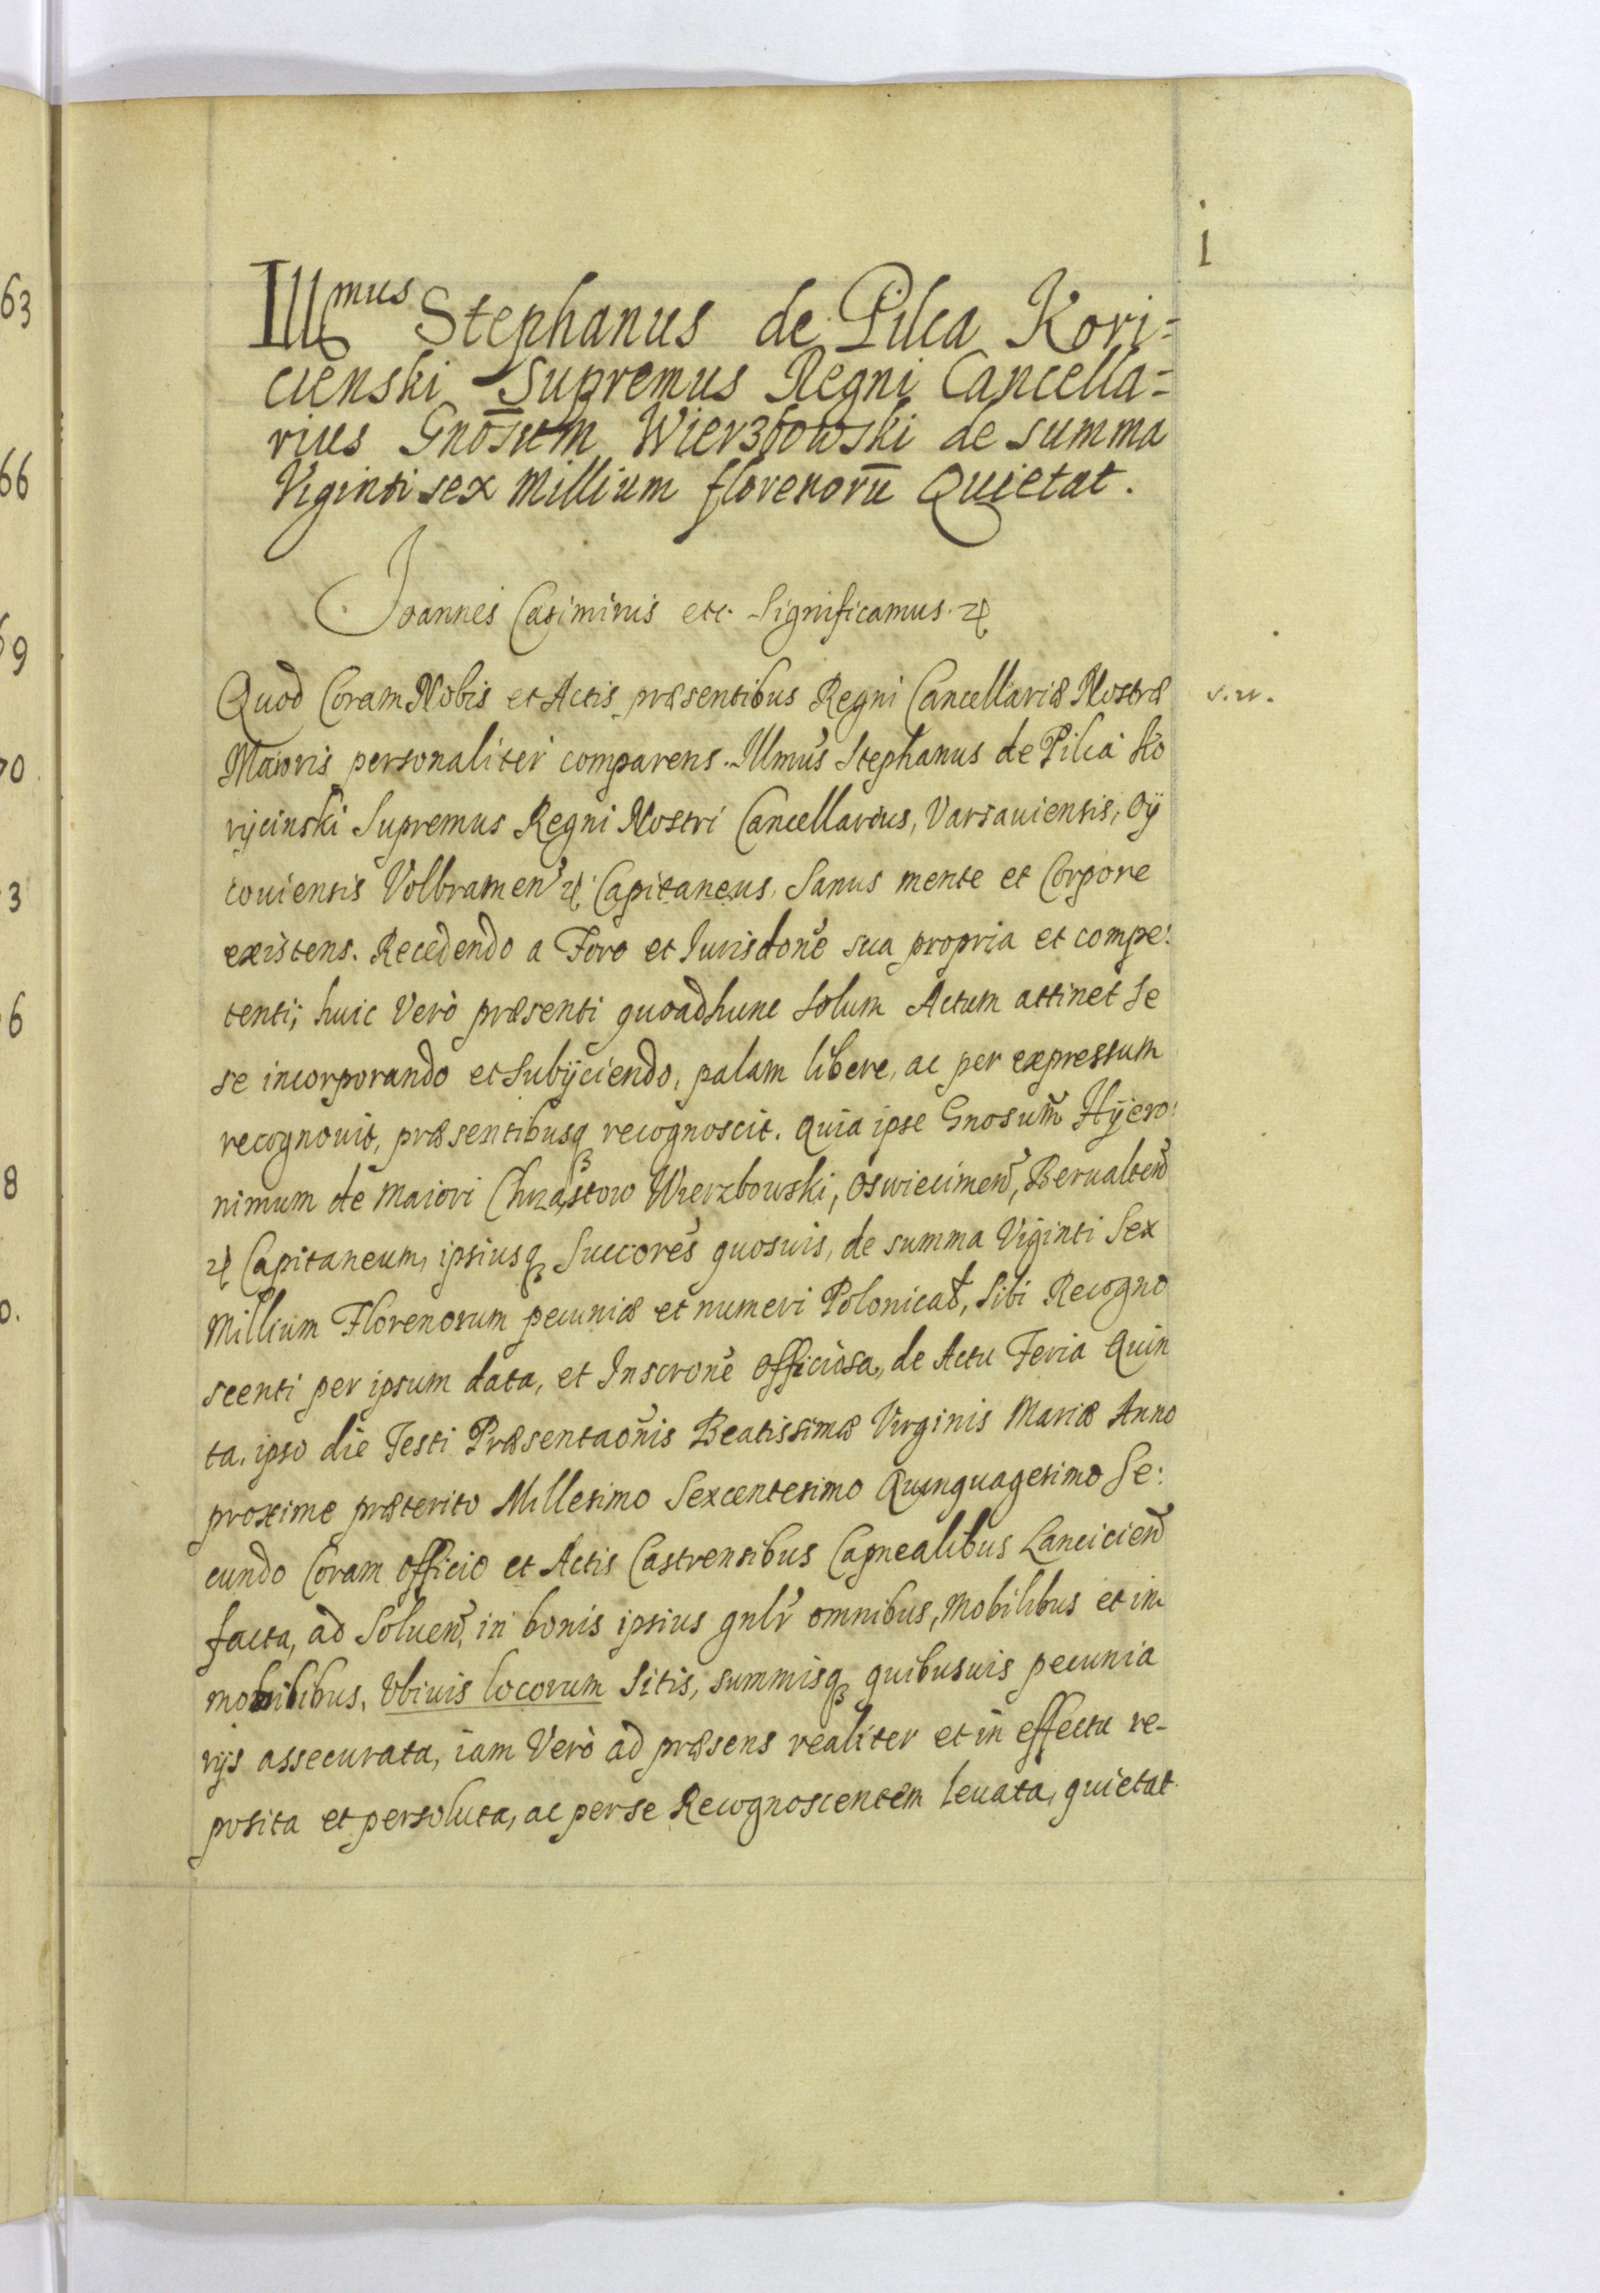 1
Illmus Stephanus de Pilca Kori=
cienski Supremus Regni Cancella=
rius Gnōsum Wierzbowski de summa
Viginti sex Millium florenorū Quietat.
Joannes Casimirus etc. Significamus. etc
Quod Coram Nobis et Actis præsentibus Regni Cancellariæ Nostræ
Maioris personaliter comparens. Illmus Stephanus de Pilca Ko
rycinski Supremus Regni Nostri Cancellarius, Varsauiensis, Oÿ
couiensis Volbramen etc Capitaneus, Sanus mente et Corpore
existens. Recedendo a Foro et Jurisdone sua propria et compe:
tenti; huic Verò præsenti quoadhunc solum Actum attinet Se
se incorporando et Subÿciendo, palam libere, ac per expressum
recognouit, præsentibusq recognoscit. Quia ipse Gnosum Hÿero:
nimum de Maiori Chrząstow Wierzbowski, Oswiecimen, Berualten
etc Capitaneum, ipsiusq Succores quosuis, de summa Viginti Sex
Millium Florenorum pecuniæ et numeri Polonical, Sibi Recogno
scenti per ipsum data, et Inscrone officiosa, de Actu Feria Quin
ta. ipso die Festi Præsentaonis Beatissimæ Virginis Mariæ Anno
proxime præterito Millesimo Sexcentesimo Quinquagesimo Se:
cundo Coram Officio et Actis Castrensibus Capnealibus Lancicien
facta, ad Soluen, in bonis ipsius gnlr omnibus, Mobilibus et im
mobilibus, Vbiuis locorum Sitis, summisq quibusuis pecunia
rijs assecurata, iam Verò ad præsens realiter et in effectu re-
posita et persoluta, ac per se Recognoscentem leuata, quietat
63
66
69
70
3
6
8
0.